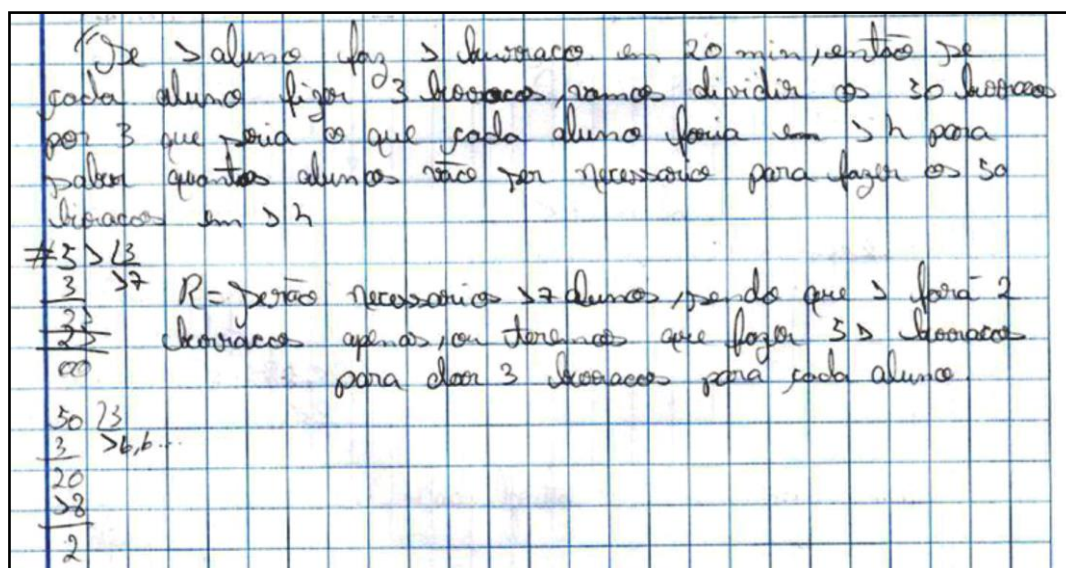 Se 1 aluno faz 1 burraco em 20 min, então se
cada aluno fizer 3 burracos, vamos dividir os 50 burracos
por 3 que seria o que cada aluno faria em 1 h para
saber quantos alunos vão ser necessario para fazer os 50
buracos em 1 h
#51 3
3 17
R= Serão necessarios 17 alunos, sendo que 1 fará 2
21
21 burracos apenas, ou teremos que fazer 51 burracos
00 para dar 3 burracos para cada aluno.
50 3
3 16,6...
20
18
2